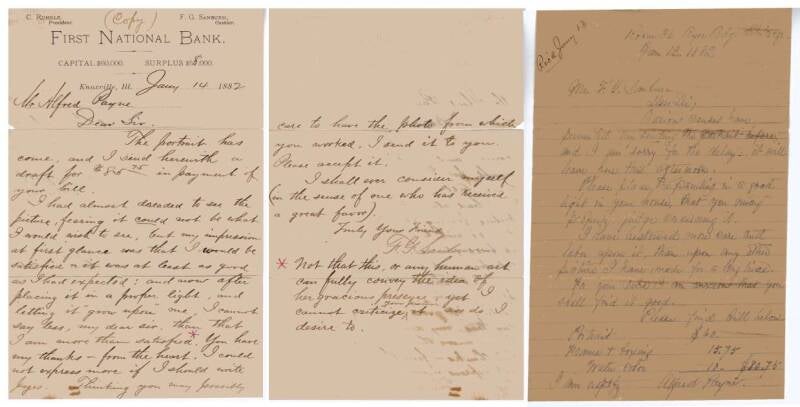 C. RUNKLE
President.
(Copy)
F. G. SANBURN,
Cashier.
FIRST NATIONAL BANK.
CAPITAL $60.000. SURPLUS $8.000.
Knoxville, Ill. Jany 14 1882
Mr Alfred Payne
Dear Sir.
The portrait has
come, and I send herewith a
draft for $85 75 in payment of
your bill.
I had almost dreaded to see the
picture, fearing it could not be what
I would wish to see, but my impression
at first glance was that I would be
satisfied & it was at least as good
as I had expected; and now after
placing it in a proper light, and
letting it grow upon me, I cannot
say less, my dear sir, than that
I am more than satisfied.* You have
my thanks – from the heart. I could
not express more if I should write
pages. Thinking you may possibly
care to have the photo from which
you worked, I send it to you.
Please accept it.
I shall ever consider myself
(in the sense of one who has received
a great favor).
Truly Yours Friend,
F. G. Sanburn
* Not that this, or any human art
can fully convey the idea of
her gracious presence & yet I
cannot criticize it as do I
desire to.
Rec'd Jany 13
Jan 12. 1882
Mr F. G. Sanburn
Dear Sir,
and I am sorry for the delay – it will
leave here this afternoon.
Please place the painting in a good
light in your house, that you may
properly judge in seeing it.
I have bestowed more care and
labor upon it, than upon any other
picture I have made for a long time.
shall find it good.
Please find bill below
Portrait $60.
Frame & boxing 15.75
Water Color 10. $85.75
Alfred Payne.